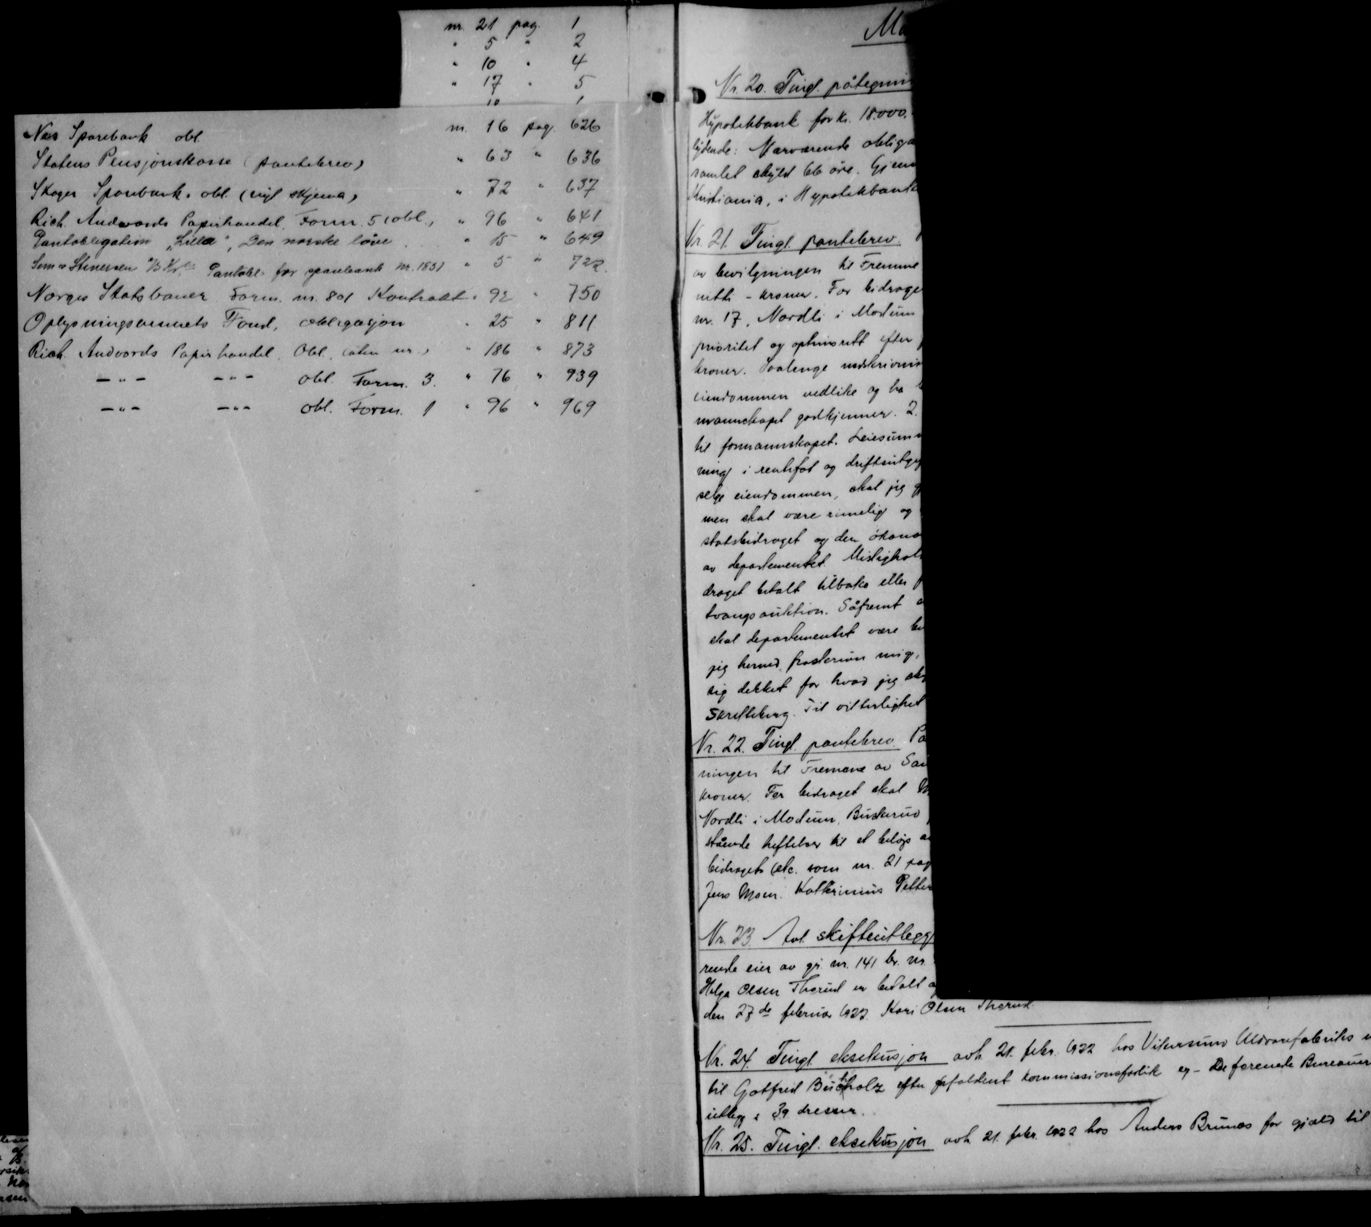 nr. 21 pag. 1
" 5 " 2
" 10 " 4
" 17 " 5
Nes Sparebank obl nr. 16 pag. 626
Statens Pensjonskasse (pantebrev) " 63 " 636
Skoger Sparebank. obl " 72 " 637
Rich. Andvords Papirhandel, Form. 5 (obl., " 96 " 641
Pantobligation „Lilla", Den norske löve. " 15 " 649
Sem & Stenersen A/S Kr. Pantobl. for sparebank nr. 1831 " 5 " 722.
Norges Statsbaner Form. nr. 801 Kontrakt " 92 " 750
Oplysningsvesenets Fond, obligasjon " 25 " 811
Rich. Andvords Papirhandel. Obl. (uten nr., " 186 " 873
— " — — " — obl. Form. 3. " 76 " 939
— " — — " — obl. Form. 1 " 96 " 969
Nr. 20. Tingl. påtegnin
Hypotekbank for kr. 18000.
lydende: Nærværende obliga
samlet skyld 66 øre.
Kristiania, i Hypotekbank
Nr. 21. Tingl. pantebrev.
av bevilgningen til Fremme
nitti - kroner. For bidrage
nr. 17, Nordli i Modum
prioritet og optrinsrett efter
kroner. Saalenge
eiendommen vedlike og ha
mannskapet godkjenner. 2.
til formannskapet. Leiesum
ning i rentefot og driftsutgif
selge eiendommen, skal jeg
men skal være rimelig og
statsbidraget og den økono
av departementet. Mislighol
draget betalt tilbake eller
tvangsauktion. Såfremt
skal departementet være be
jeg herved fraskriver mig,
sig dekket for hvad jeg
Til vitterlighet
Nr. 22. Tingl. pantebrev.
ningen til Fremme av
kroner. For bidraget skal
Nordli i Modum, Buskerud
stående heftelser til et beløp
bidraget (etc. som nr. 21 pag
Jens Moen. Kathrinus Petter
Nr. 23. Avl. skifteutlegg
rende eier av gr. nr. 141 br. nr.
Helga Olsen Therud er betalt
den 27de februar 1922. Kari Olsen Therud
Nr. 24. Tingl. eksekusjon avh. 21. febr. 1922 hos Vikersund Uldvarefabriks
til Gotfred Buchholz efter forfaldent kommissionsforlik og - De forenede Bureauer
utlegg i 39 dresser.
Nr. 25. Tingl. eksekusjon avh. 21. febr. 1922 hos Anders Brunes for gjæld til